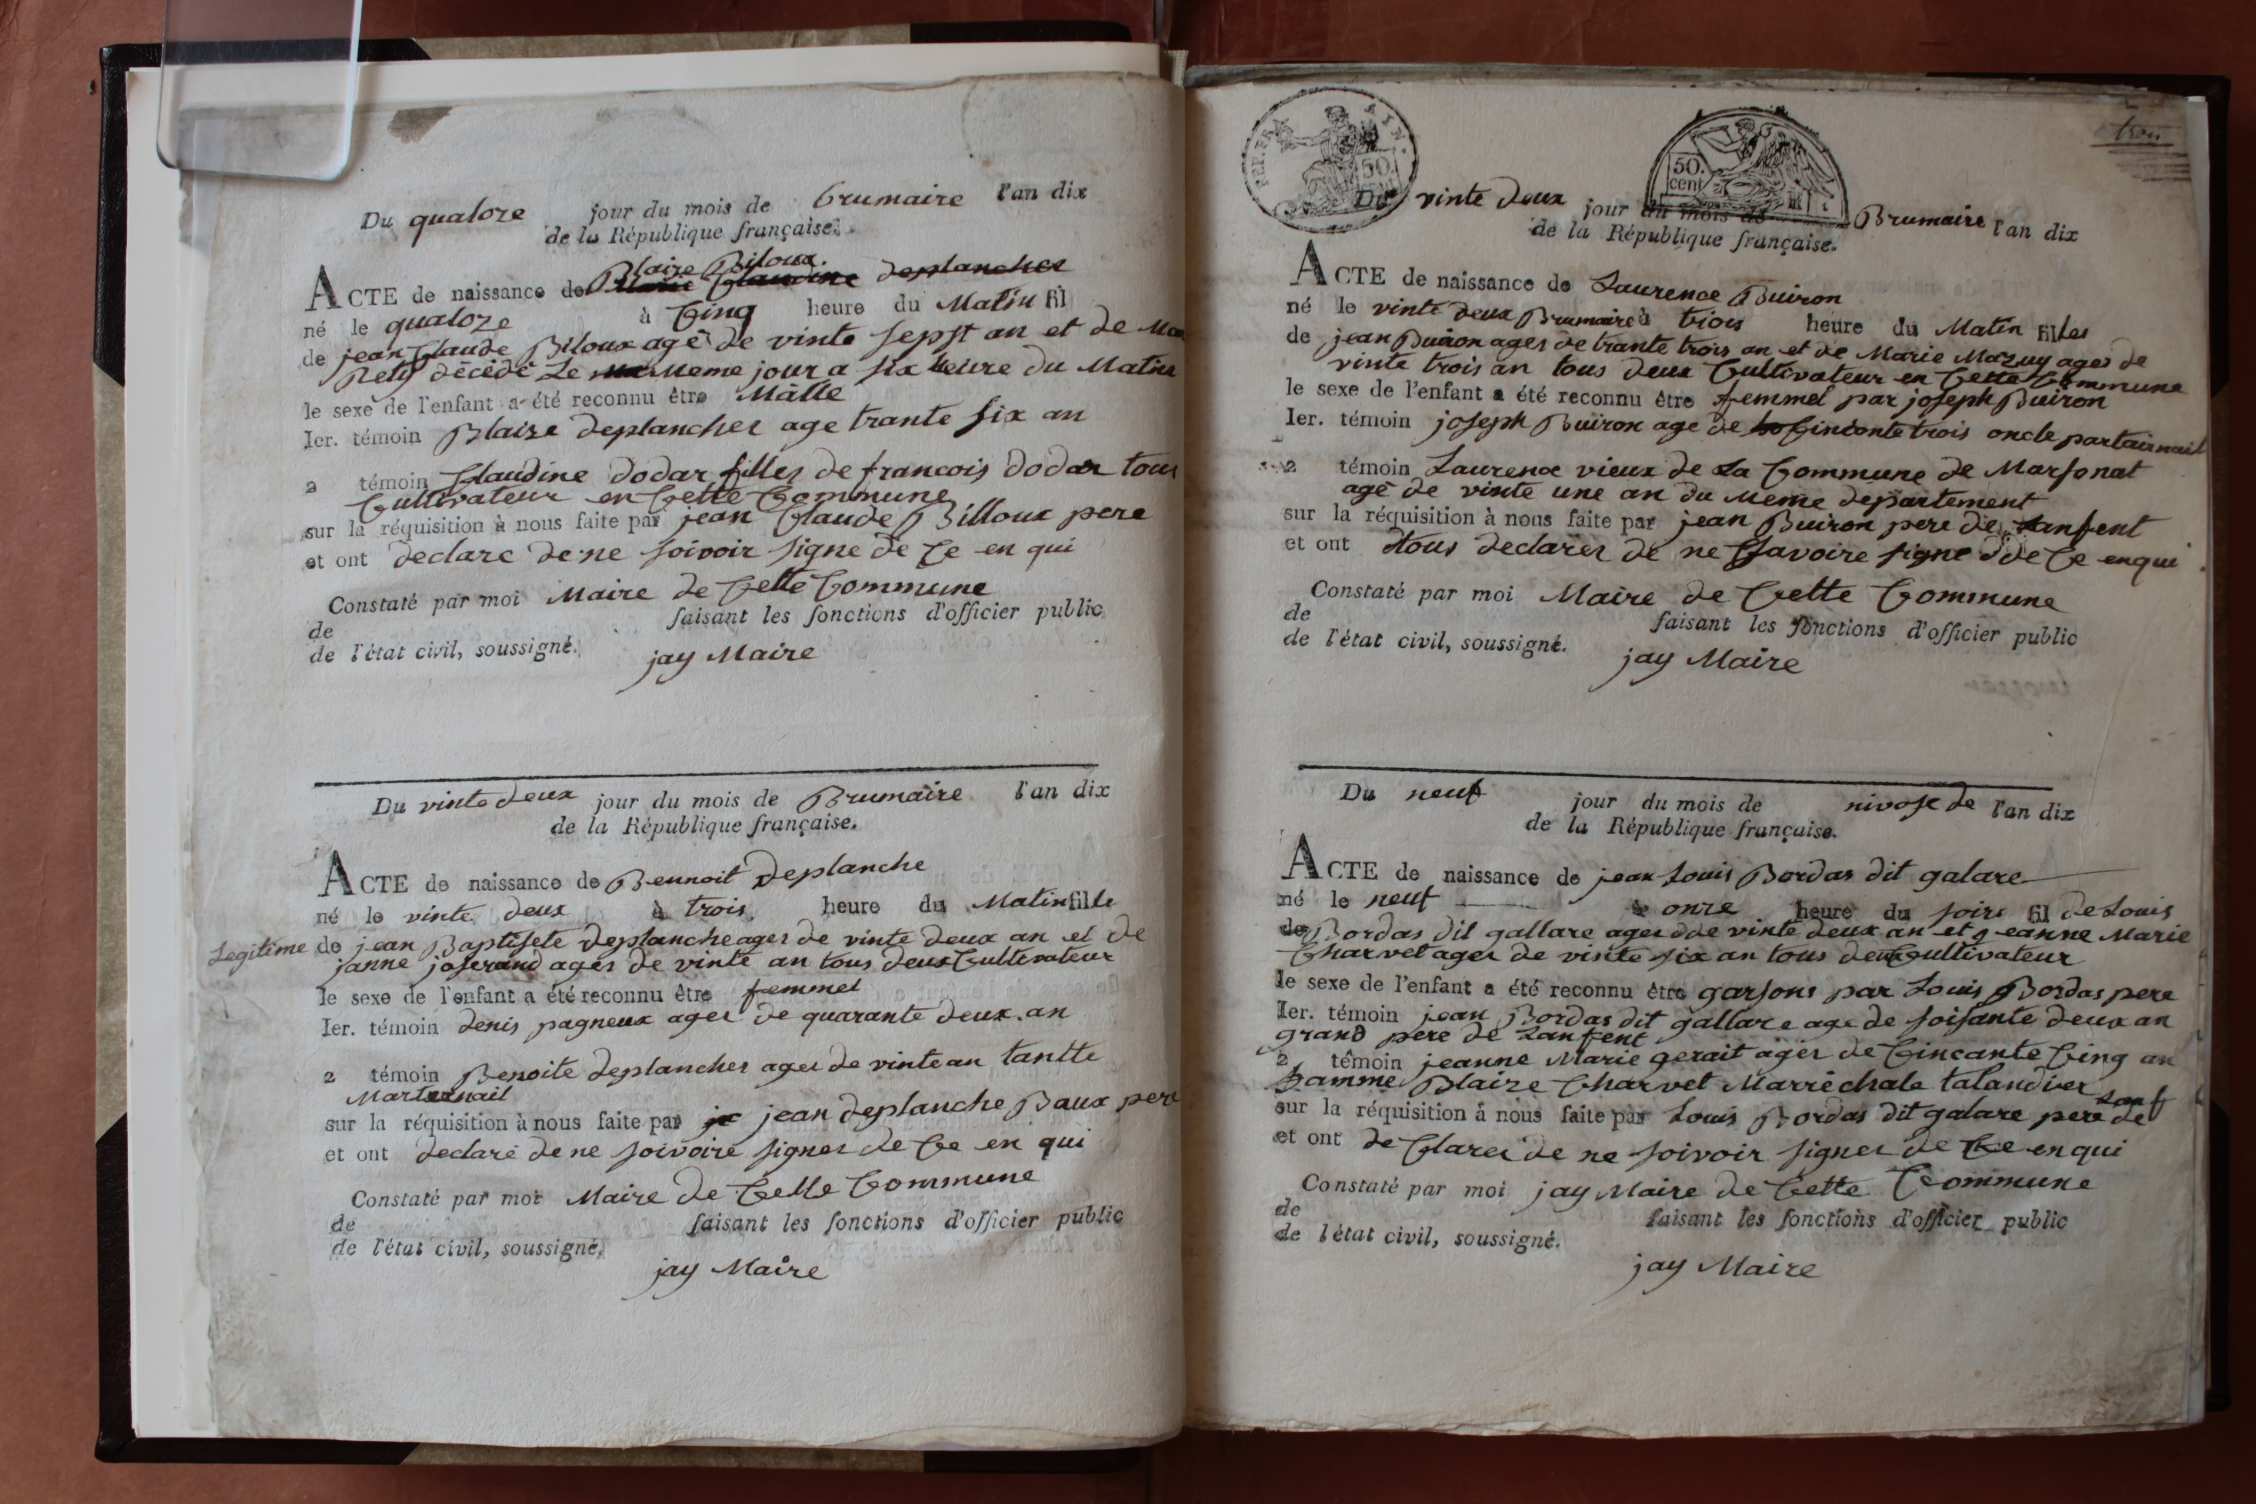 Du quatorze jour du mois de brumaire l'an dix
de la République française.
Blaire Biloux.
ACTE de naissance de Claudine deplanches
né le quatorze à Cinq heure du Matin fil
de jean Claude Biloux agé de vinte sepst an et de
Rety décédé Le Meme jour a six heure du Matin
le sexe de l'enfant a été reconnu être Mâlle
Ier. témoin Blaize deplanches age trante six an
2 témoin Claudine dodar filles de francois dodar tous
Cultivateur en Cette Commune
sur la réquisition à nous faite par jean Claude Billoux pere
et ont declare de ne soivoir signe de Ce en qui
Constaté par moi Maire de Cette Commune
de faisant les fonctions d'officier public
de l'état civil, soussigné.
jay Maire
Du vinte deux jour du mois de Brumaire l'an dix
de la République française.
ACTE de naissance de Bennoit Deplanche
né le vinte deux à trois heure du Matin fille
Legitime de jean Baptisete Deplanche ages de vinte deux an et de
janne joserand ages de vinte an tous deux Cultivateur
le sexe de l'enfant a été reconnu être femmel
Ier. témoin denis pagneux ages de quarante deux an
2 témoin Benoite deplanches ages de vinte an tantte
Marternail
sur la réquisition à nous faite par jean deplanche Baux pere
et ont declaré de ne soivoire signer de Ce en qui
Constaté par moi Maire de Cette Commune
de faisant les fonctions d'officier public
de l'état civil, soussigné.
jay Maire
trois
REP. FRA. 50.
50. cent
Du vinte deux jour du mois de Brumaire l'an dix
de la République française.
ACTE de naissance de Laurence Buiron
né le vinte deux Brumaire à trois heure du Matin filles
de jean Buiron ages de trante trois an et de Marie Mazuy ages de
vinte trois an tous deux Cultivateur en Cette Commune
le sexe de l'enfant a été reconnu être femmel par joseph Buiron
Ier. témoin joseph Buiron age de Cinconte trois oncle partairnail
2 témoin Laurence vieux de La Commune de Marsonat
agé de vinte une an du Meme departement
sur la réquisition à nous faite par jean Buiron pere de Lanfent
et ont tous declarer de ne Savoire signe de Ce en qui
Constaté par moi Maire de Cette Commune
de faisant les fonctions d'officier public
de l'état civil, soussigné.
jay Maire
Du neuf jour du mois de nivose de l'an dix
de la République française.
ACTE de naissance de jean Louis Bordas dit galare
né le neuf à onze heure du soire fil de Louis
de Bordas dit gallare ages de vinte deux an et jeanne Marie
Charvet ages de vinte six an tous deux Cultivateur
le sexe de l'enfant a été reconnu être garsons par Louis Bordas pere
Ier. témoin jean Bordas dit gallare age de soisante deux an
grand pere de Lanfent
2 témoin jeanne Marie gerait ages de Cincante Cinq an
famme Blaize Charvet Marréchale talandier
sur la réquisition à nous faite par Louis Bordas dit galare pere de Lanf
et ont de Clares de ne soivoir signer de Ce en qui
Constaté par moi jay Maire de Cette Commune
de faisant les fonctions d'officier public
de l'état civil, soussigné.
jay Maire